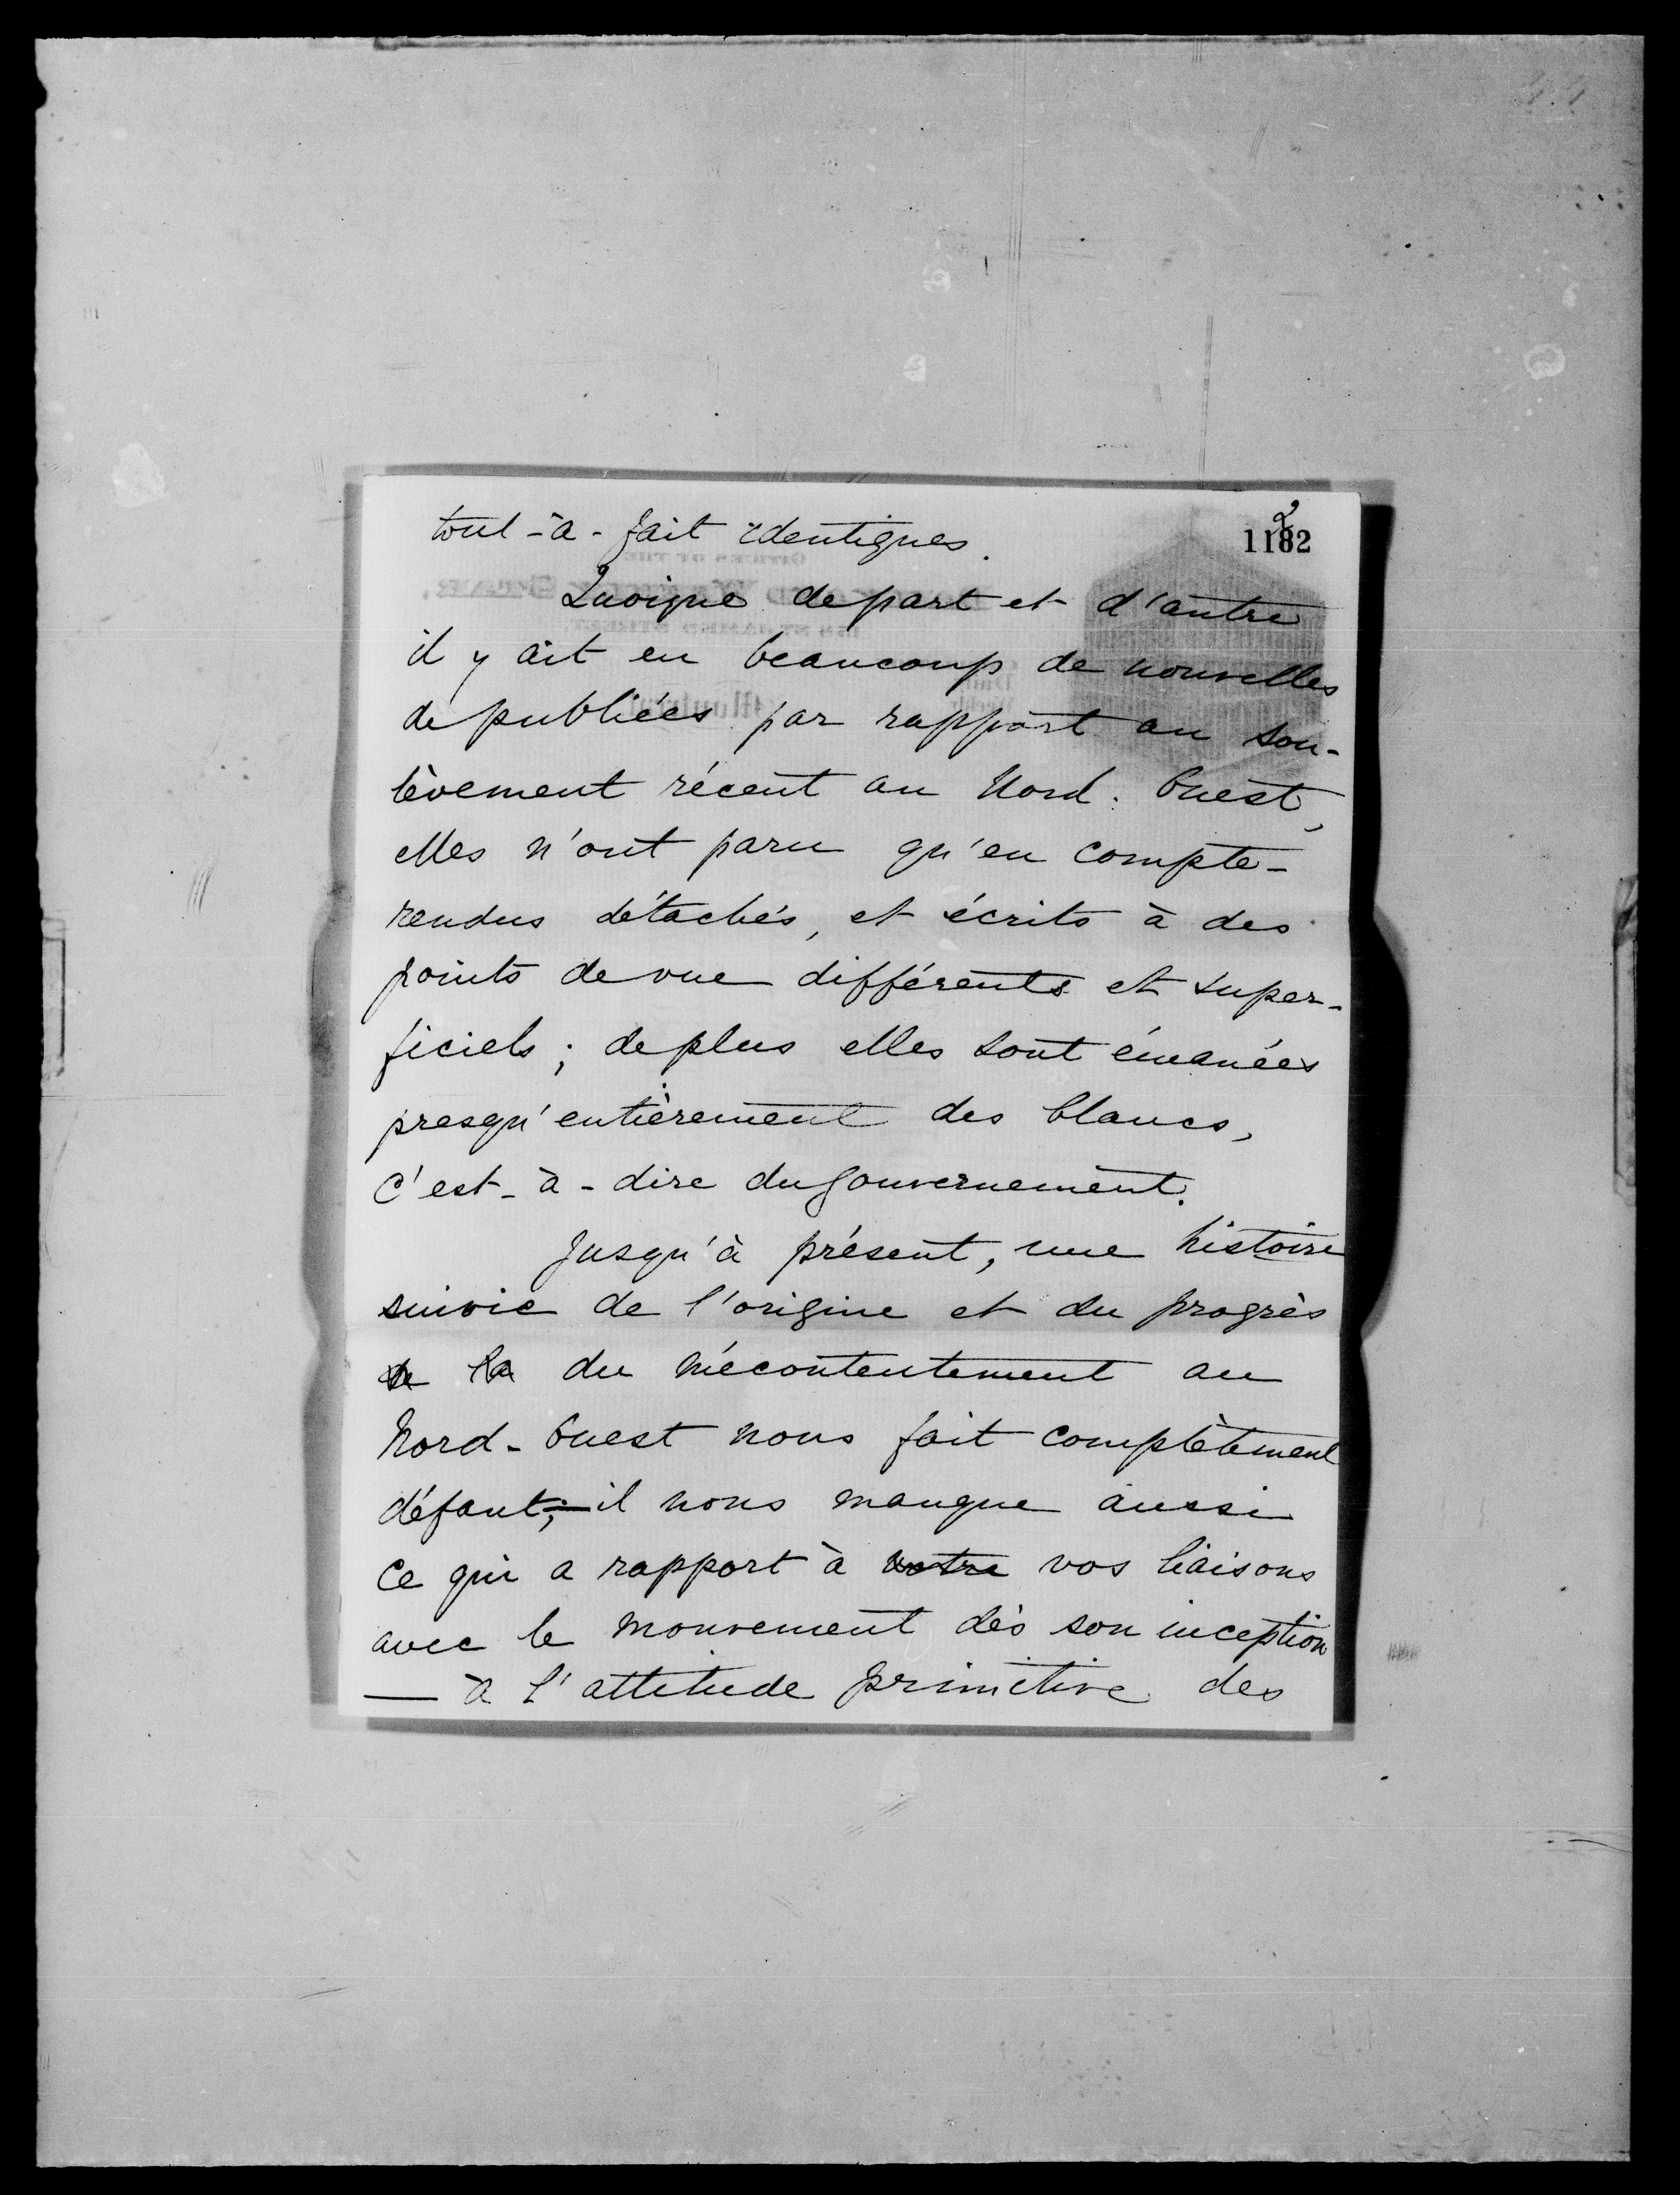 2
1182
tout-à-fait identiques.
Quoique de part et d'autre
il y ait eu beaucoup de nouvelles
de publiées par rapport au sou-
lèvement récent au Nord. Ouest,
elles n'ont paru qu'en compte-
rendus détachés, et écrits à des
points de vue différents et super-
ficiels; de plus elles sont émanées
presqu'entièrement des blancs,
c'est-à-dire du gouvernement.
Jusqu'à présent, une histoire
suivie de l'origine et du progrès
de la du mécontentement au
Nord-Ouest nous fait complètement
défaut;—il nous manque aussi
ce qui a rapport à votre vos liaisons
avec le mouvement dès son inception
— à l'attitude primitive des